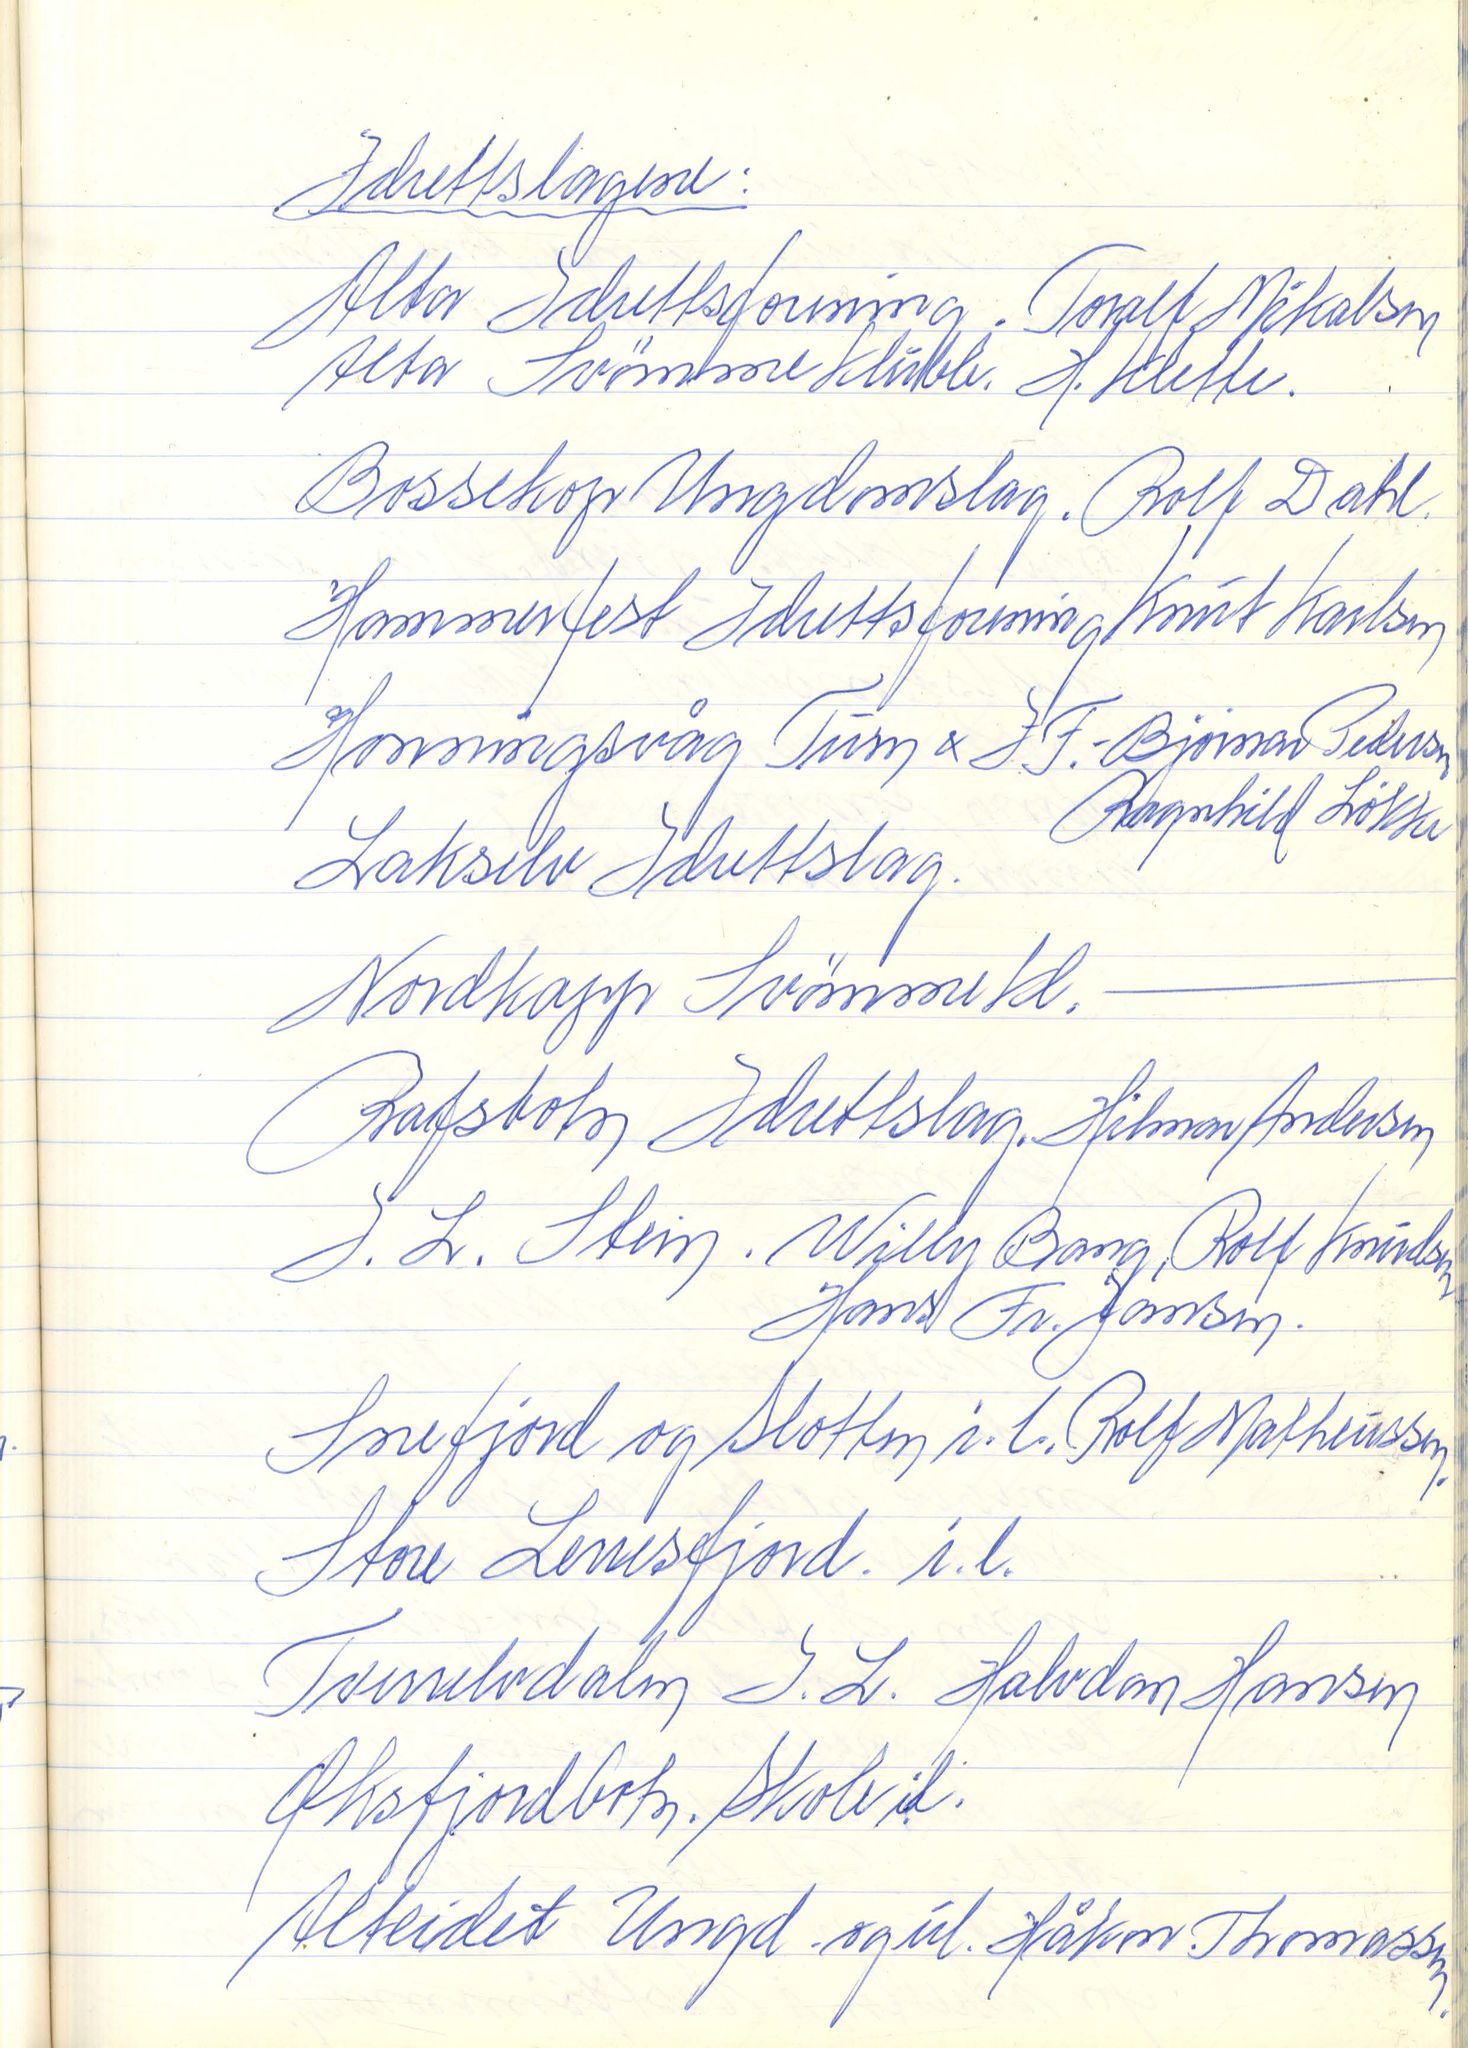 Idrettslagene:
Alta Idrettsforening. Toralf Mikalsen
Alta Svömmeklubb. H. Klette.
Bossekop Ungdomslag. Rolf Dahl.
Hammerfest Idrettsforening Knut Karlsen
Honningsvåg Turn & I F.- Bjørnar Pedersen
Ragnhild Løkke
Lakselv Idrettslag.
Nordkapp Svömmekl.
Rafsbotn Idrettslag. Hilmar Andersen
I. L. Stein. Willy Bang, Rolf Knudsen
Hans Fr. Jansen.
Snefjord og Slotten i. l. Rolf Matheussen.
Store Lerresfjord. i.l.
Tverrelvdalen I. L. Halvdan Hansen
Øksfjordbotn. Skole il.
Alteidet Ungd og il. Håkon Thomassen.